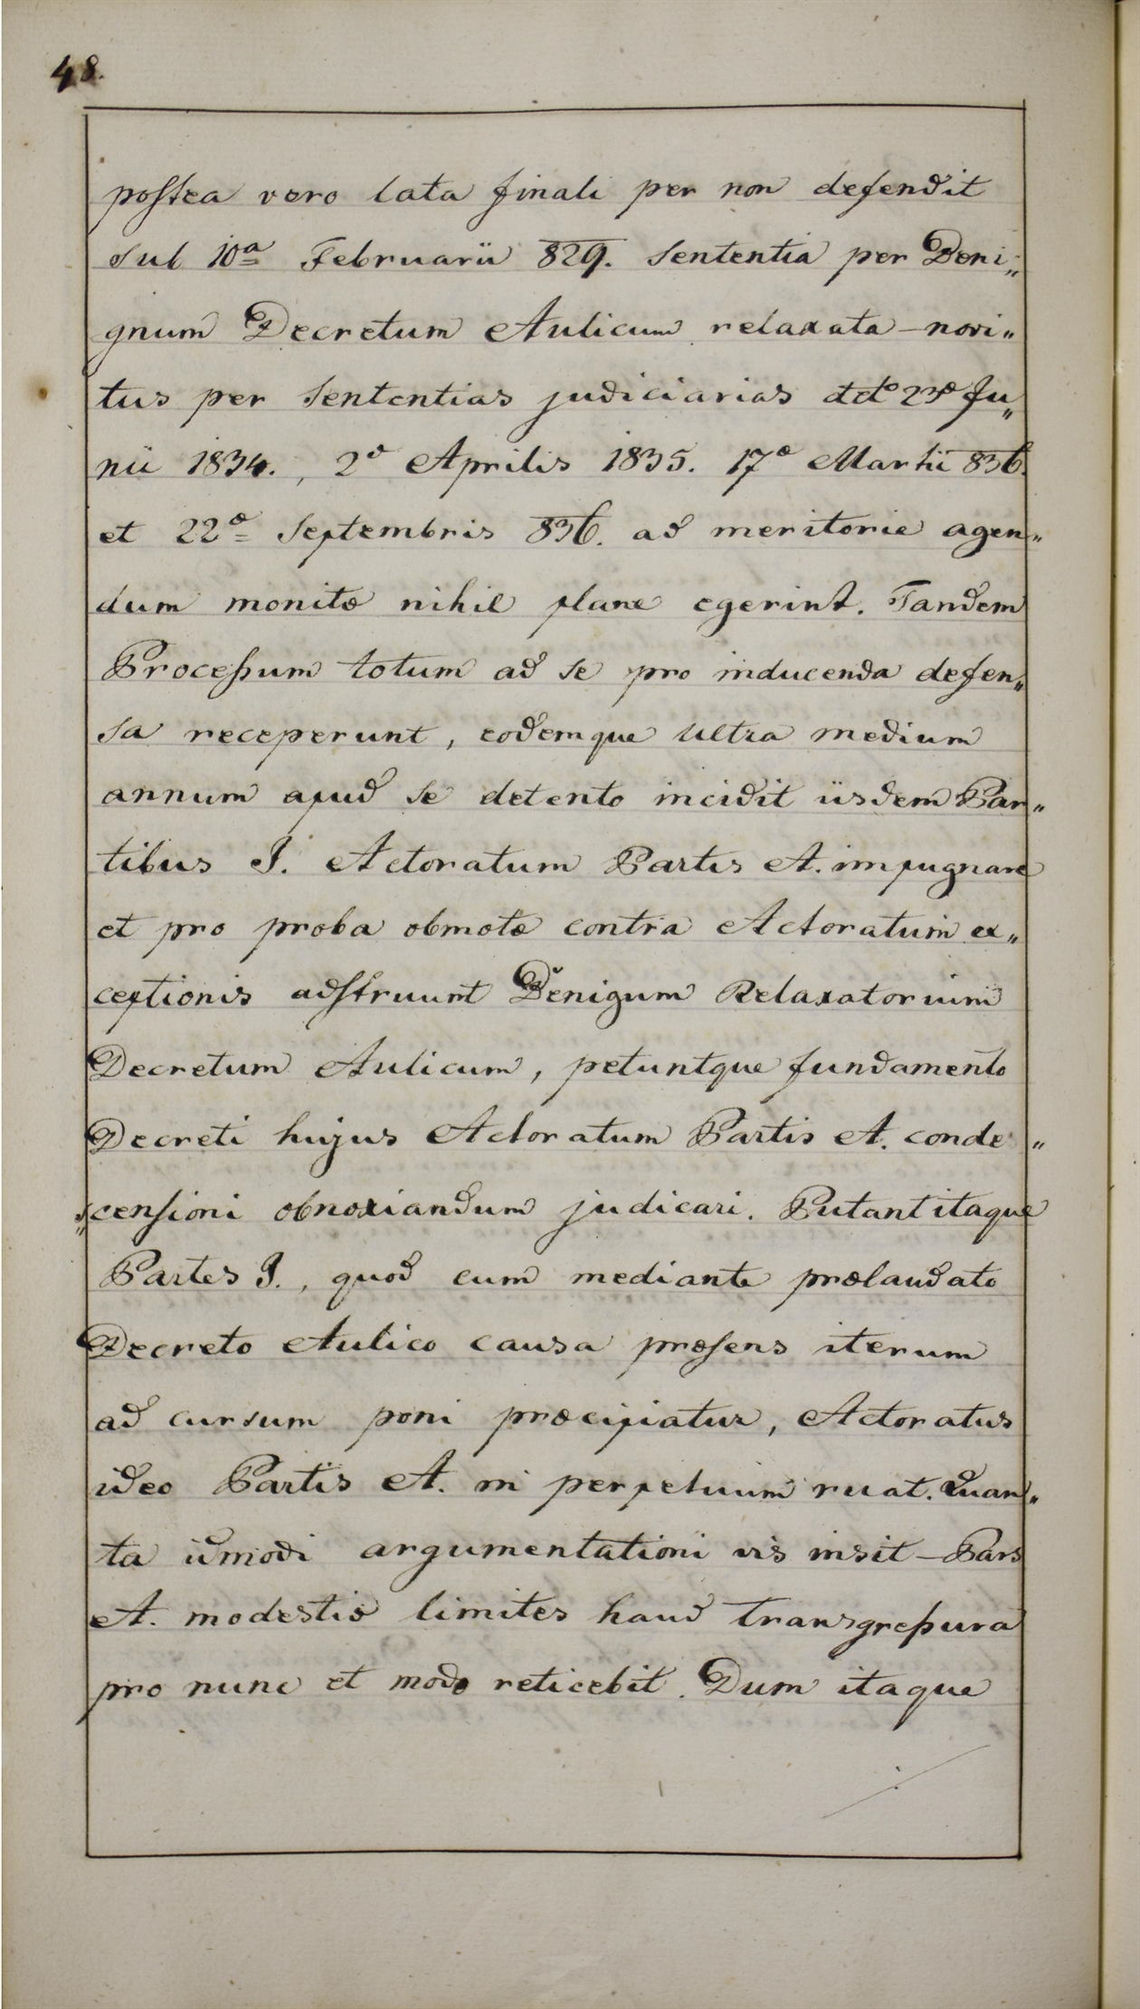 48.
postea vero lata finali per non defendit
sub 10a Februarii 829. Sententia per Beni„
gnum Decretum Aulicum relaxata – novi„
tus per Sententias judiciarias ddto 23o Ju„
nii 1834., 2o Aprilis 1835. 17o Martii 836.
et 22o Septembris 836. ad meritorie agen„
dum monitæ nihil plane egerint. Tandem
Processum totum ad se pro inducenda defen„
sa receperunt, eodemque ultra medium
annum apud se detento incidit iisdem Par„
tibus I. Actoratum Partis A. impugnare
et pro proba obmotæ contra Actoratum ex„
ceptionis adstruunt Benigum Relaxatorium
Decretum Aulicum, petuntque fundamento
Decreti hujus Actoratum Partis A. conde„
„scensioni obnoxiandum judicari. Putant itaque
Partes I., quod cum mediante prælaudato
Decreto Aulico causa præsens iterum
ad cursum poni præcipiatur, Actoratus
ideo Partis A. in perpetuum ruat. Quan„
ta idmodi argumentationi vis insit – Pars
A. modestiæ limites haud transgressura
pro nunc et modo reticebit. Dum itaque